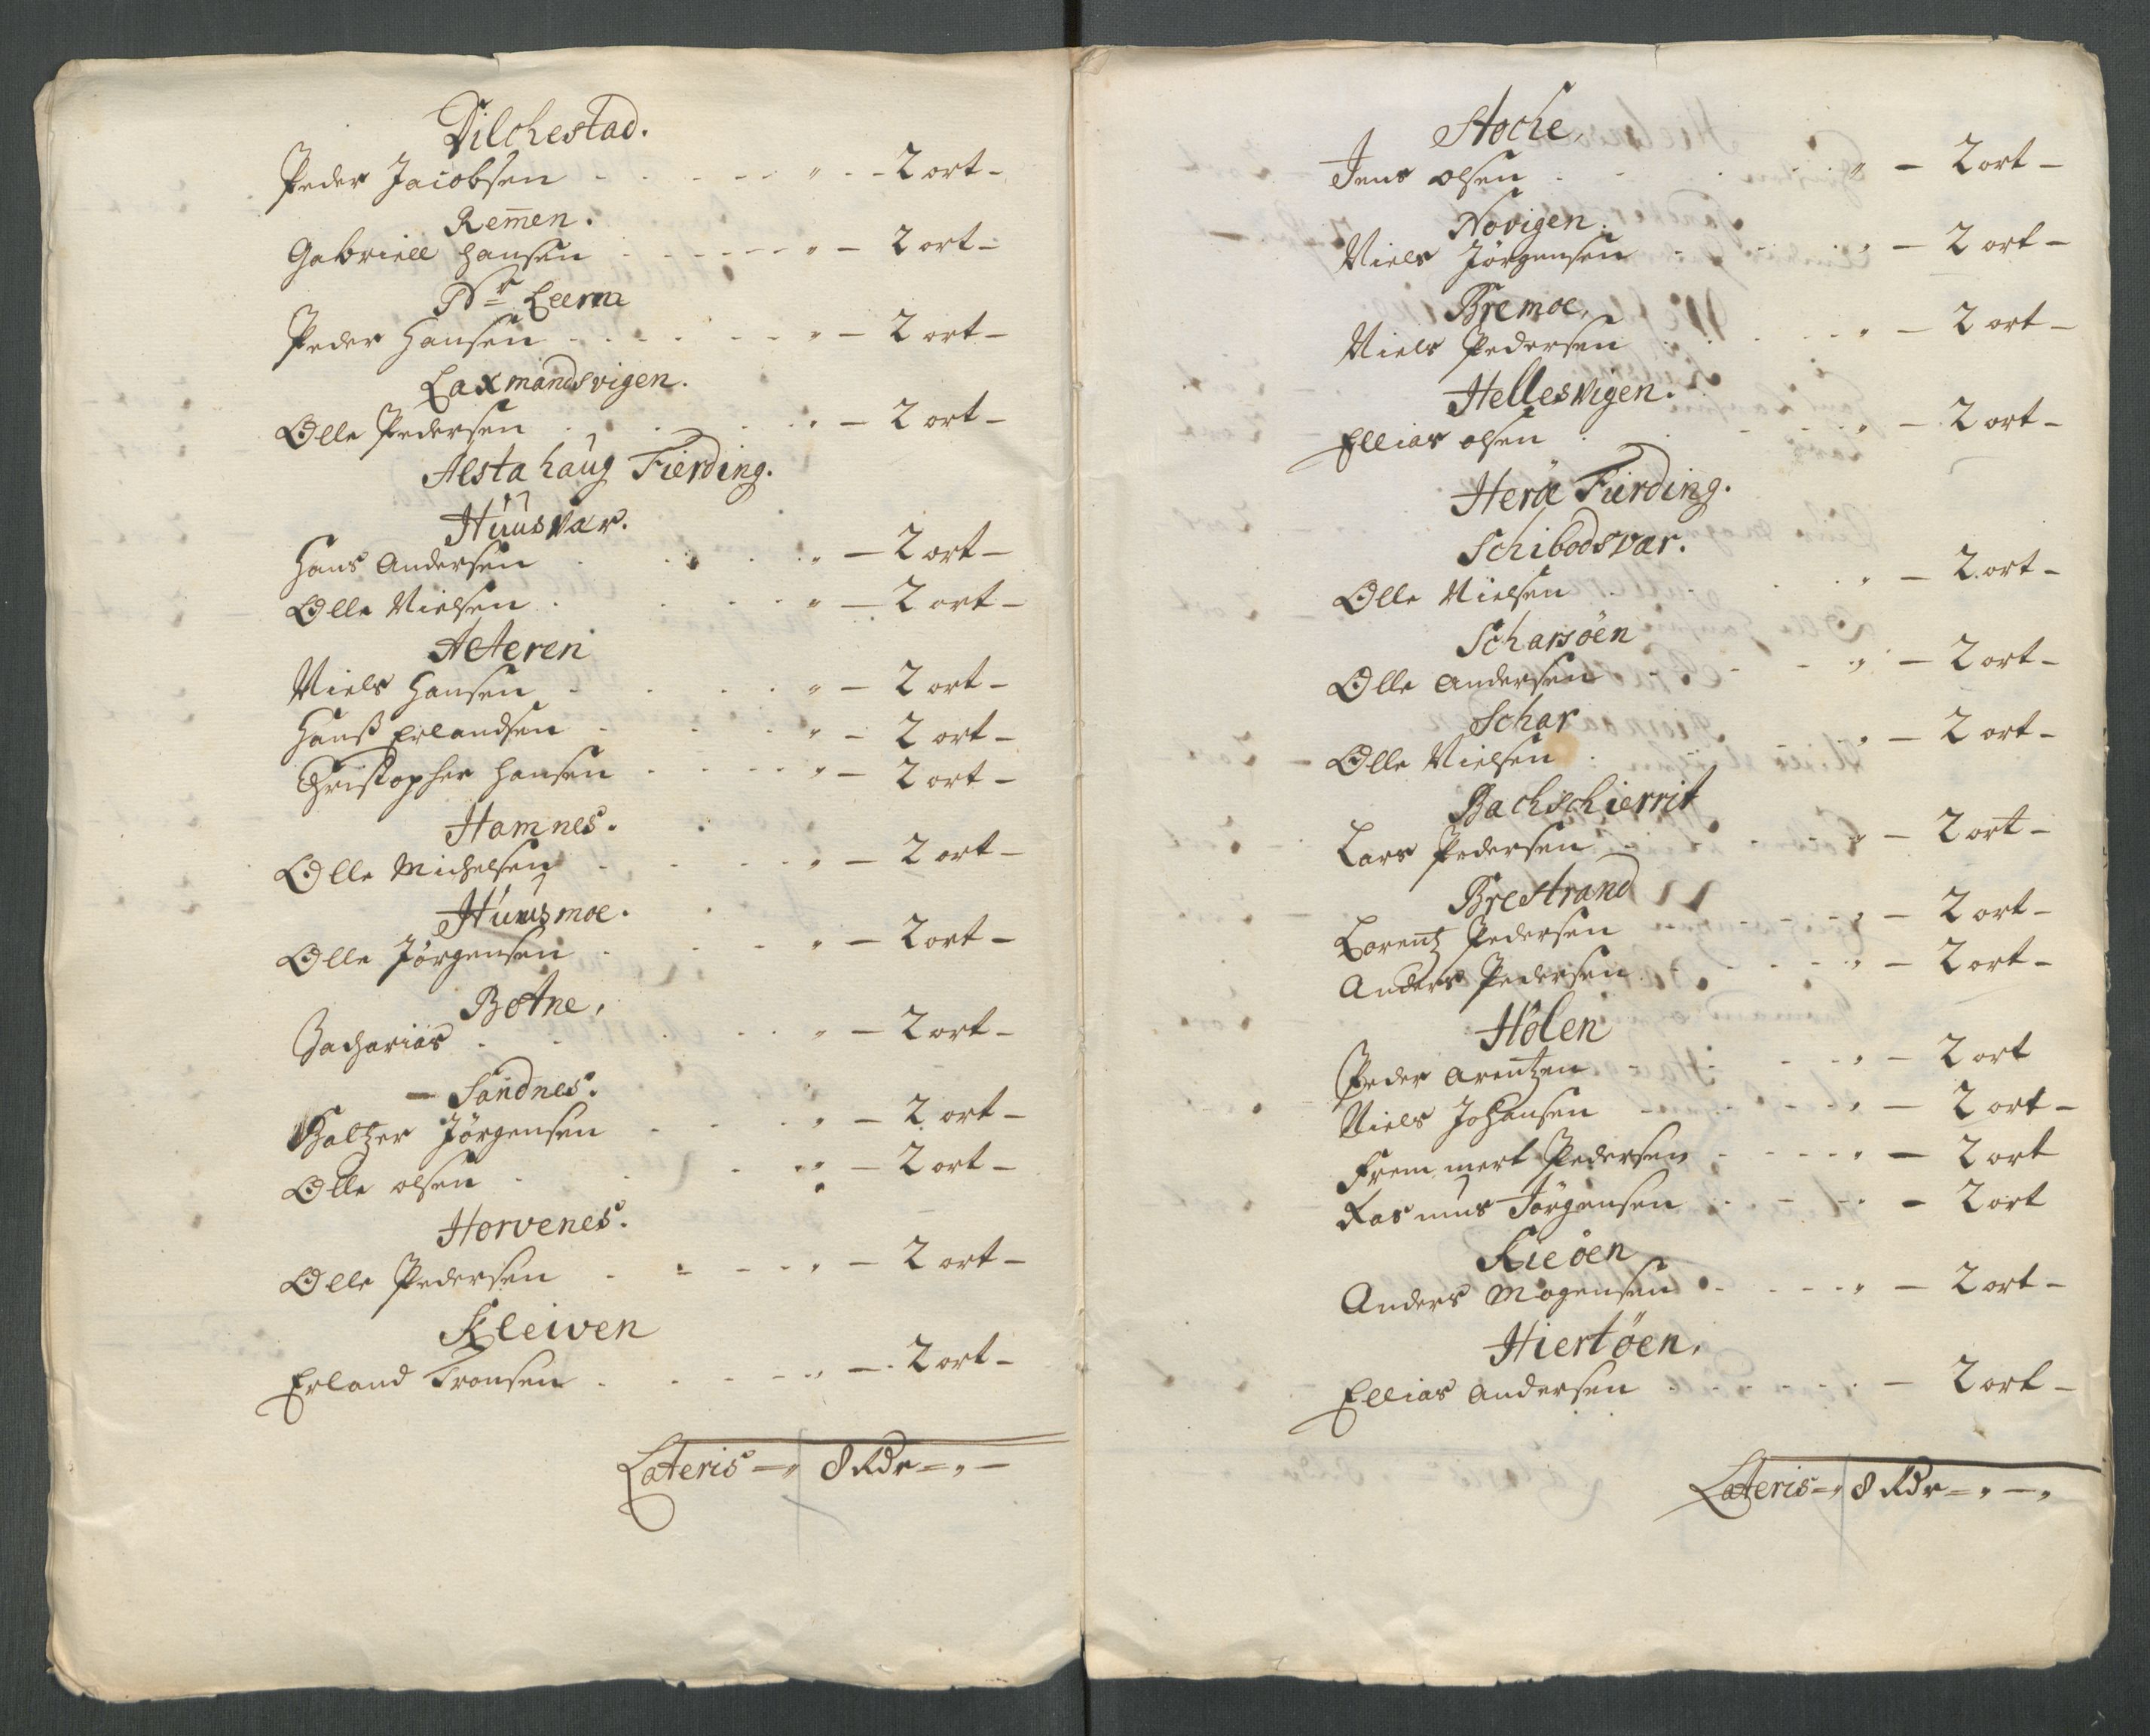 Dilchestad.
Peder Jacobsen - - - - - " - - 2 ort -
Rem̄en.
Gabriell Hansen - - - - - " - 2 ort -
Nr Leerm
Peder Hansen - - - - - " - 2 ort -
Laxmandsvigen.
Olle Pedersen - - - - " - 2 ort -
Alstahaug Fierding.
Huusvær.
Hans Andersen - - - - " - 2 ort -
Olle Nielsen - - - - " - 2 ort -
Alteren
Niels Hansen - - - - " - 2 ort -
Hanß Erlandsen - - - " - 2 ort -
Christopher Hansen - - - - " - 2 ort -
Hamnes.
Olle Michelsen - - - - " - 2 ort -
Huusmoe.
Olle Jørgensen - - - " - 2 ort -
Botne,
Zacharias - - - - - " - 2 ort -
- Sandnes.
Baltzer Jørgensen - - - " - 2 ort -
Olle olsen - - - " - 2 ort -
Horvenes.
Olle Pedersen - - - - " - 2 ort -
Kleiven
Erland Tronsen - - - - " - 2 ort -
Lateris - " 8 Rdr = " -
Stoche,
Jens olsen - - - - " - 2 ort -
Novigen.
Niels Jørgensen - - - " - 2 ort -
Bremoe,
Niels Pedersen - - - " - 2 ort -
Hellesvigen.
Ellias olsen - - - - " - 2 ort -
Herøe Fierding.
Schibodsvær.
Olle Nielsen - - - " - 2 ort -
Scharsöen
Olle Andersen - - - " - 2 ort -
Schar
Olle Nielsen - - - " - 2 ort -
Bachschierrit
Lars Pedersen - - - - " - 2 ort -
Brestrand
Lorentz Pedersen - - - - " - 2 ort -
Anders Pedersen - - - - " - 2 ort -
Hölen
Peder Arentzen - - - - " - 2 ort
Niels Johansen - - - - " - 2 ort -
Fremmert Pedersen - - - - " - 2 ort
Rasmus Jørgensen - - - " - 2 ort
Kieöen
Anders Mogensen - - - - " - 2 ort -
Hiertöen,
Ellias Andersen - - - - - - 2 ort -
Lateris = " 8 Rdr = " - "